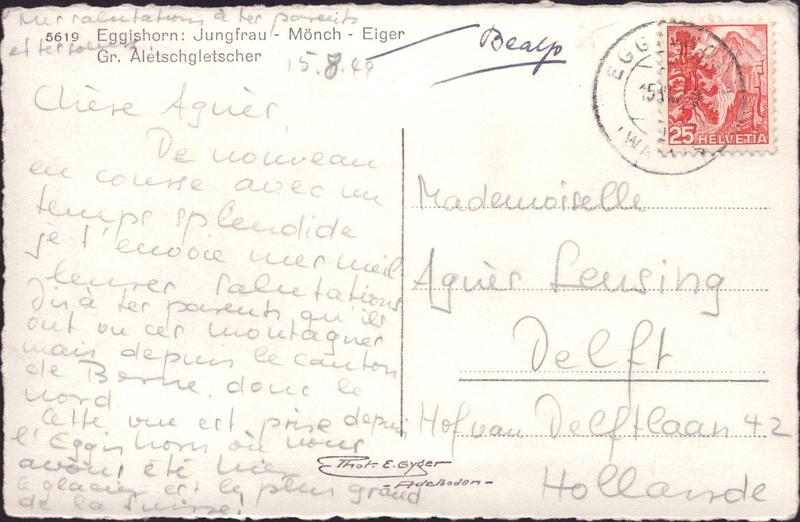 Mes salutations à tes parents
et tes soeurs
5619 Eggishorn: Jungfrau - Mönch - Eiger
Gr. Aletschgletscher
15.8.49
Bealp
Chère Agnès,
De nouveau
en course avec un
temps splendide
je t'envoie mes meil-
leures salutations
Dis à tes parents qu'ils
ont vu ces montagnes
mais depuis le canton
de Berne, donc le
nord
Cette vue est prise depuis
l'Eggishorn où nous
avons été hier
le glacier est le plus grand
de la Suisse!
EGG
15
WA
25 HELVETIA
Mademoiselle
Agnès Lensing
Delft
Hof van Delftlaan 42
Hollande
Phot. E. Gyger
- Adelboden -